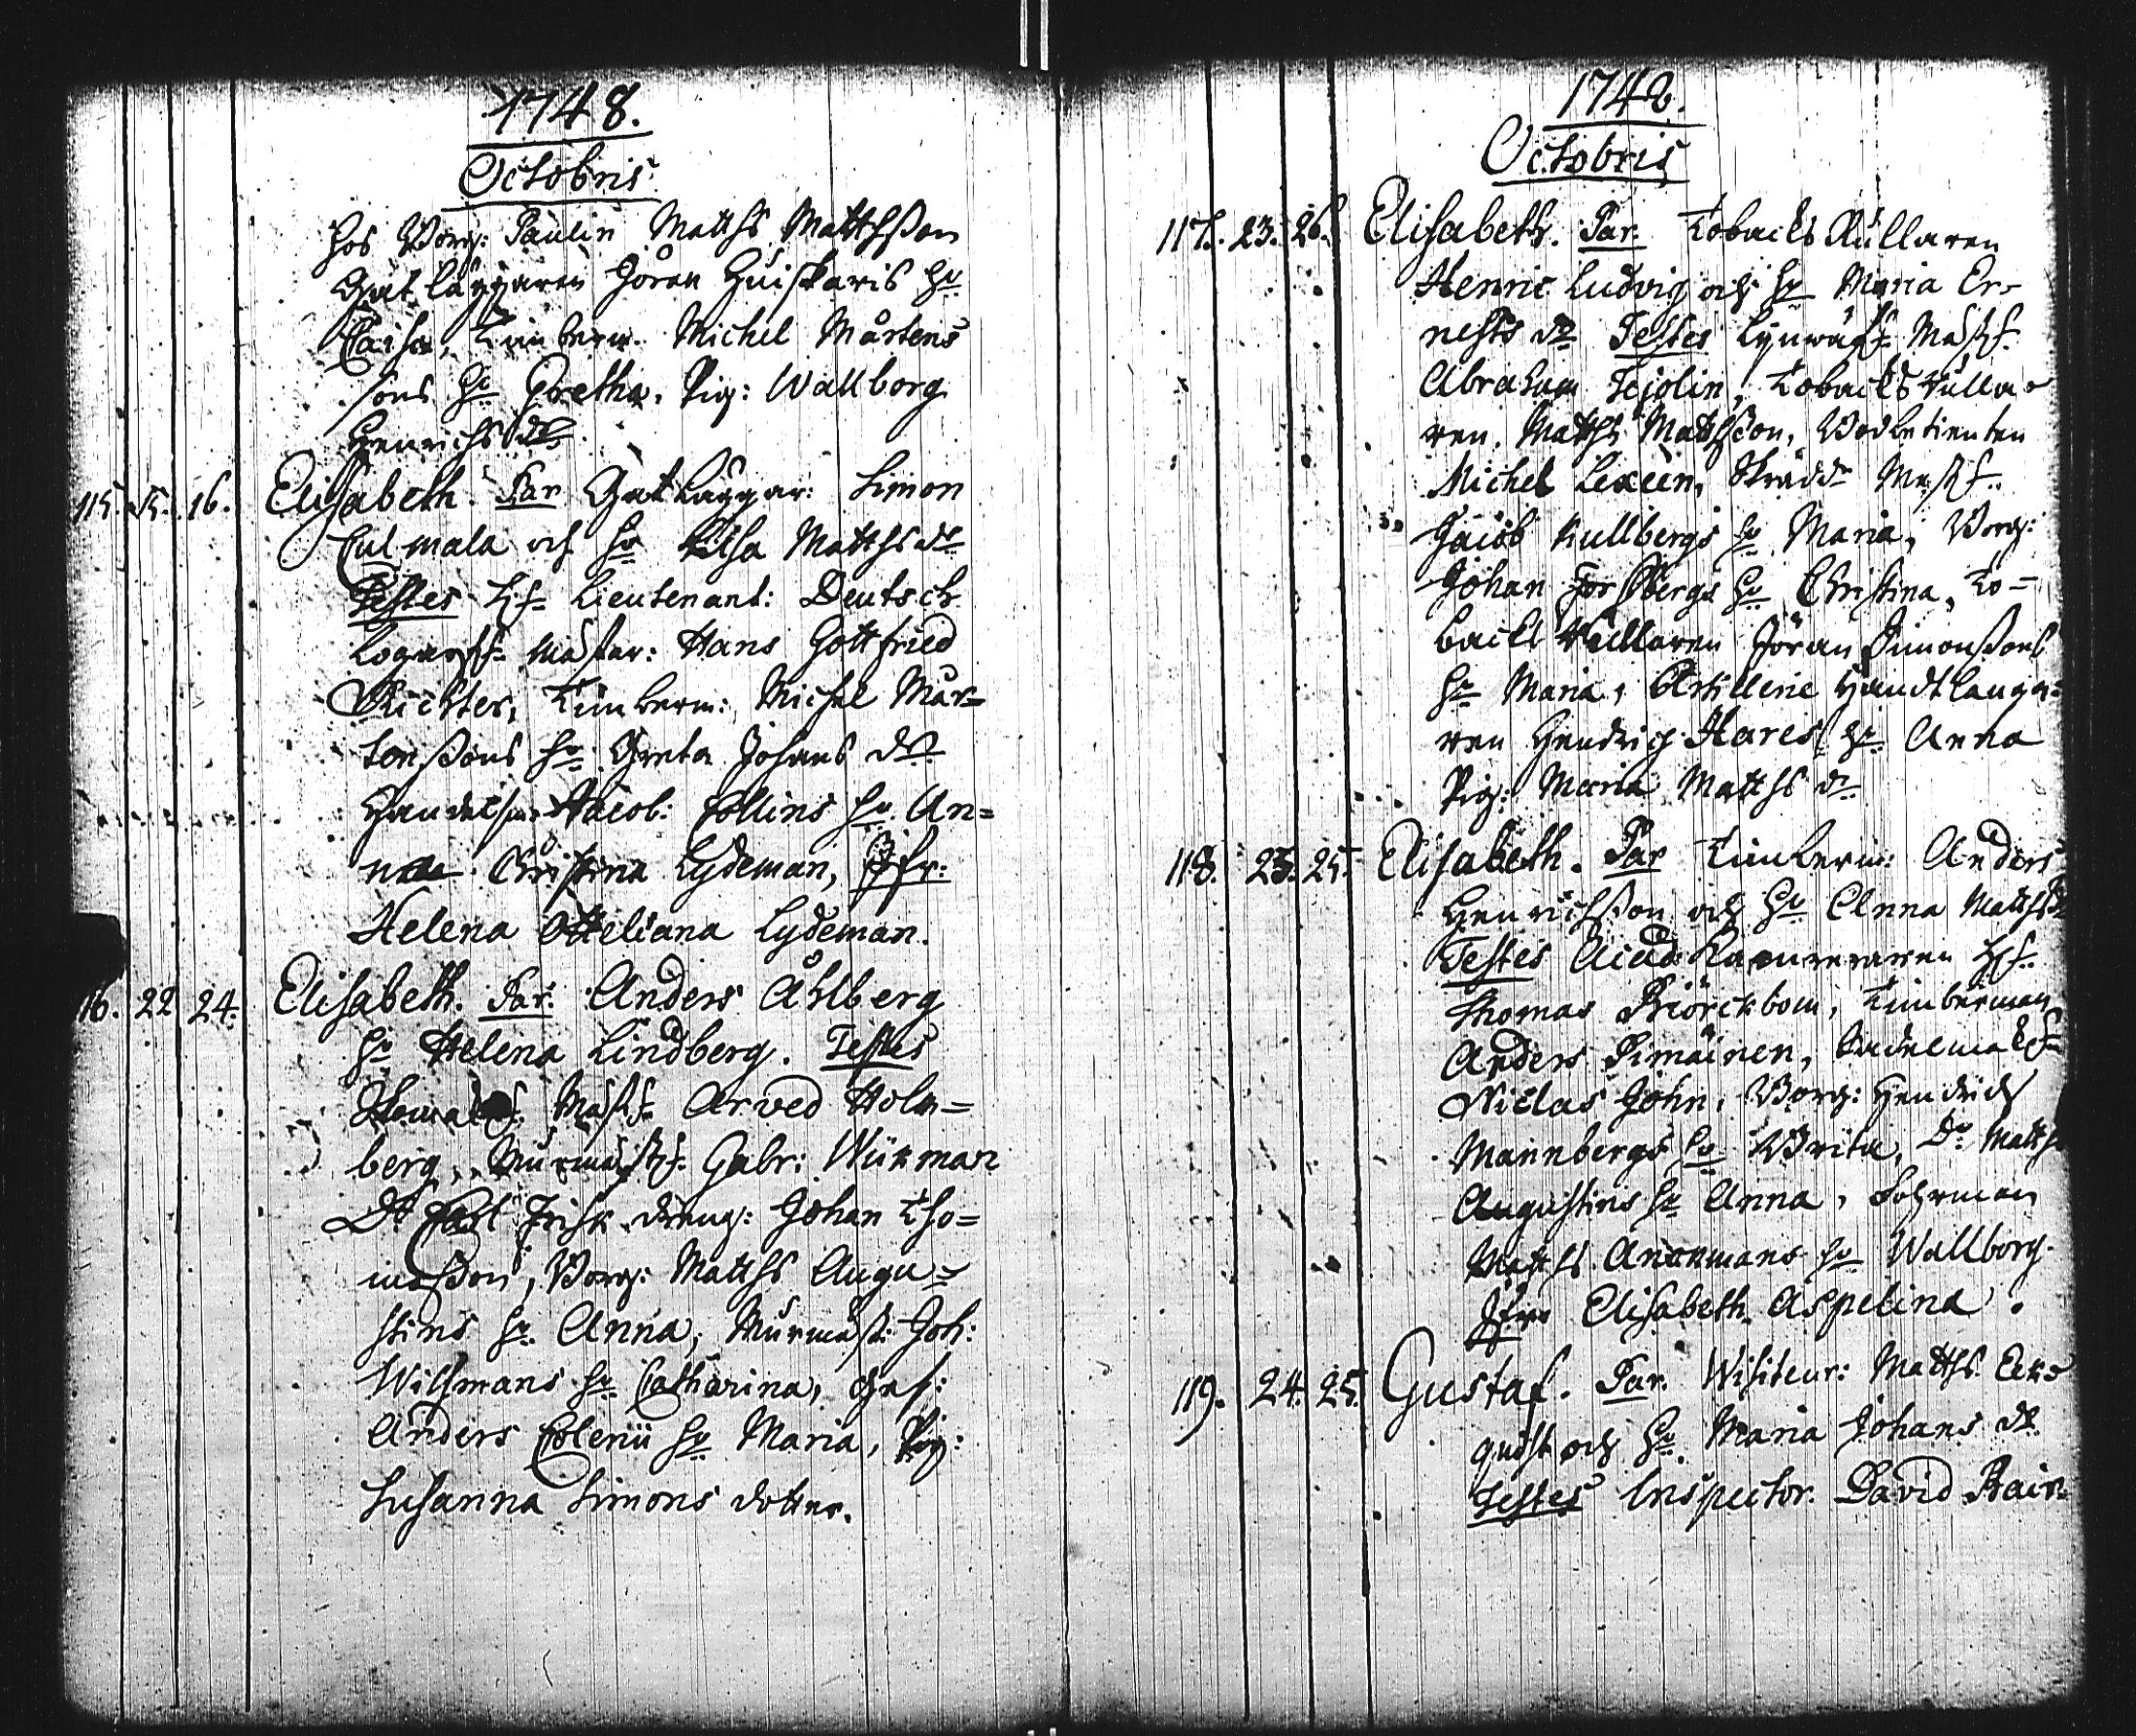 1748.
Octobris
hos Borg: Paulin Matths Matthsson
Gatläggaren Jören Huiskaris hu
Caisa, Timberm. Michel Mårtens
sons hu Gretha. Pig: Wallborg
Henrichs dr
115. 15. 16. Elisabeth. Par Gatläggar: Simon
Culmala och hu Elsa Matths dr
Testes H. Lieutenant: Deutsch
Mästar: Hans Gottfried
Richter, Timberm: Michel Mår=
tensons hu Greta Johans dr
Handelsm. Jacob: Collins hu An=
na Christina Lydeman, Jfr:
Helena Lydeman.
116. 22 24. Elisabeth. Par. Anders Åhlberg
hu Helena Lindberg. Testes
Mäst. Arved Holm=
berg, Murmäst. Gabr: Wikman
Do Carl Frisk, dreng: Johan Tho=
masson, Borg: Matths Augu=
stins hu Anna, Murmäst: Joh:
Wilsmans hu Catharina, Ges:
Anders Eblerii hu Maria, Pig:
Susanna Simons dotter.
1748.
Octobris
117. 23. 26. Elisabeth. Par. Tobacks Rullaren
Henric Ludvig och hu Maria Er=
nests dr Testes Mäst.
Abraham Tejolin, Tobacks Rulla=
ren. Matths Mattsson, Betienten
Michel Lexeen, Skradd Mäst.
Jacob Kullbergs hu Maria, Borg:
Johan Forsbergs hu Christina, To=
backs Rullaren Jöran Simonssons
hu Maria, Artillerie Handtlanga=
ren Hendrich Hares hu Anna
Pig: Maria Matths dr
118. 23. 25. Elisabeth. Par Timberm: Anders
Henrichsson och hu Anna Matths dr
Testes Cammereraren H.
Thomas Biörckbom, Timberman
Anders Pimäinen, Sadelmak.
Niclas John, Borg: Hendrich
Mannbergs hu Brita, Do Matths
Augustins hu Anna, Fohrman
Matths Anckmans hu Wallborg.
Jfru Elisabeth Aspelina.
119. 24. 25. Gustaf. Par. Wisiteur: Matths Eke=
quist och hu Maria Johans dr
Testes Inspector. David Rain=